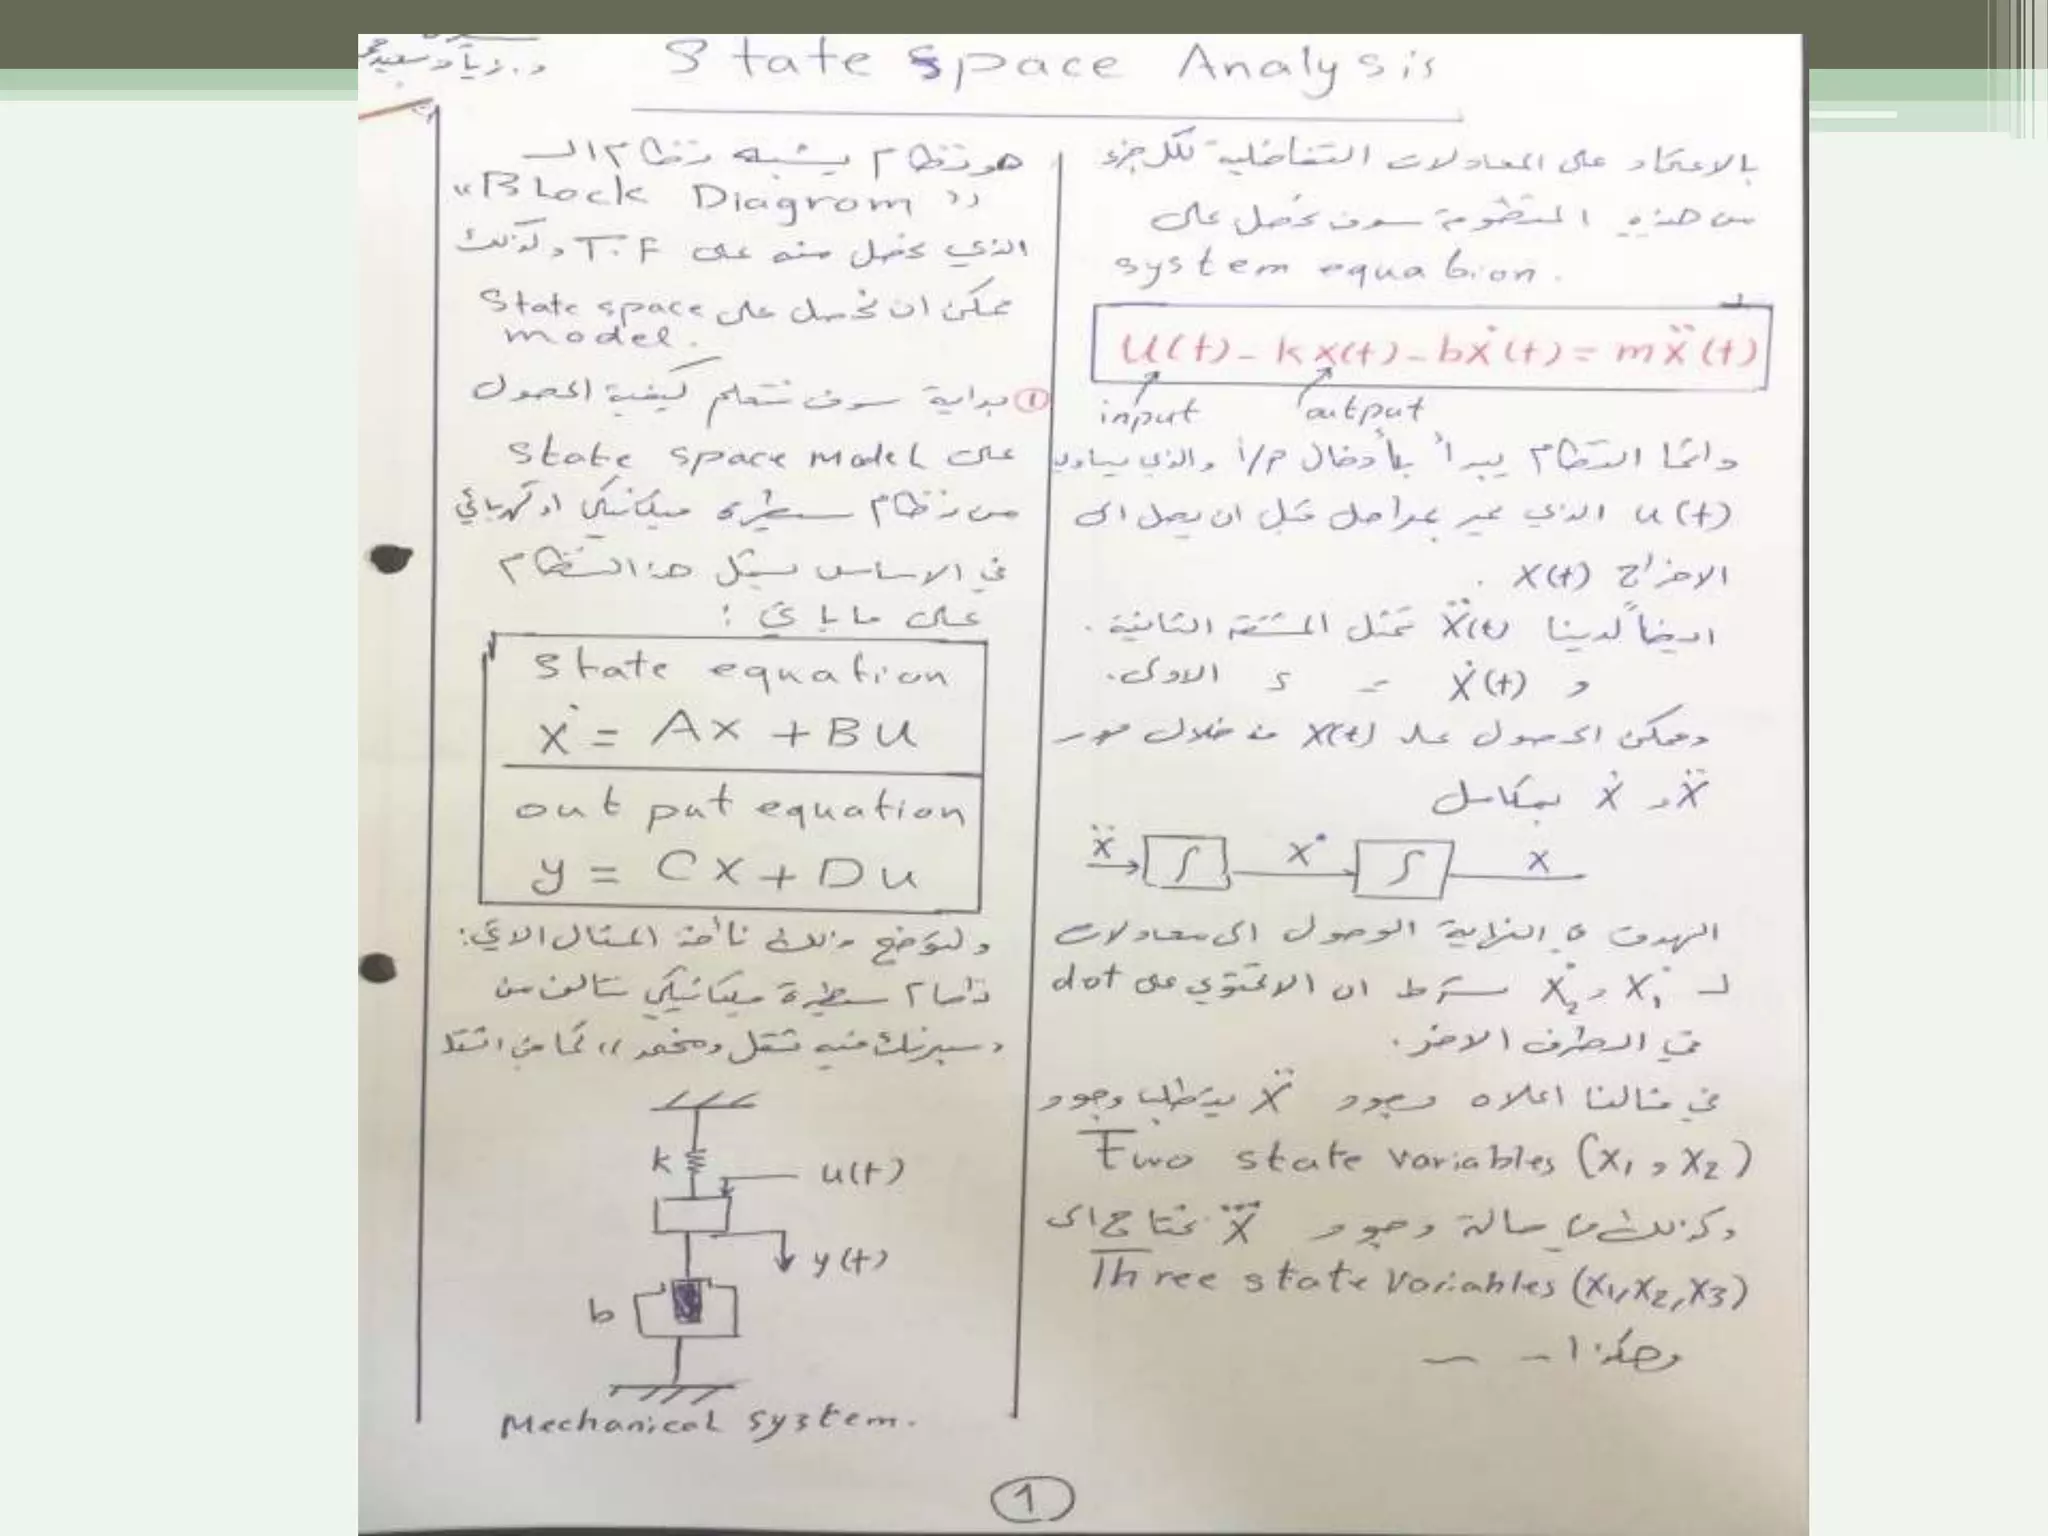 State space Analysis
د. زياد سعيد
هو نظام يشبه نظام الـ
"Block Diagrom"
الذي نحصل منه على T.F وكذلك
ممكن ان نحصل على State space
model.
① بداية سوف نتعلم كيفية الحصول
على State space Model
من نظام سيطرة ميكانيكي او كهربائي
في الاساس يمثل هذا النظام
على ما يأتي :
State equation
ẋ = Ax + Bu
out put equation
y = Cx + Du
ولتوضح ذلك نأخذ المثال الآتي:
نظام سيطرة ميكانيكي تتألف من
سبرنك فيه ثقل ومخمد ,, كما في
k
u(t)
y(t)
b
Mechanical system.
بالاعتماد على المعادلات التفاضلية لكل جزء
من هذه المنظومة سوف نحصل على
system equation.
U(t) - kx(t) - bẋ(t) = mẍ(t)
input output
دائماً النظام يبدأ بأدخال i/p والذي يساوي
u(t) الذي يمر بمراحل قبل ان يصل الى
الاخراج x(t) .
ايضاً لدينا ẍ(t) تمثل المشتقة الثانية .
و ẋ(t) = = الاولى.
وممكن الحصول على x(t) من خلال مرور
ẍ و ẋ بمكامل
ẍ ∫ ẋ ∫ x
الهدف في النهاية الوصول الى معادلات
لـ ẋ₁ و ẋ₂ شرط ان لا تحتوي على dot
في الطرف الاخر .
في مثالنا اعلاه وجود ẍ يتطلب وجود
Two state variables (x₁ , x₂)
وكذلك في حالة وجود x⃛ نحتاج الى
Three state variables (x₁,x₂,x₃)
وهكذا - - ~
1